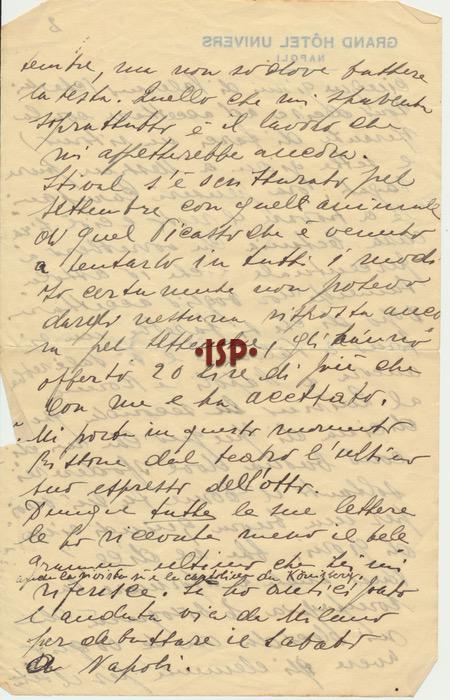 GRAND HÔTEL UNIVERS
NAPOLI
tembre, ma non so dove battere
la testa. Quello che mi spaventa
soprattutto è il lavoro che
mi aspetterebbe ancora.
Stival s'è scritturato pel
settembre con quell'animale
di quel Picasso che è venuto
a tentarlo in tutti i modi
Io certamente non potevo
dargli nessuna risposta anco
ra pel settembre, gli hanno
offerto 20 lire di più che
con me e ha accettato.
Mi porta in questo momento
Pistone dal teatro l'ultimo
suo espresso dell'otto.
Dunque tutte le sue lettere
le ho ricevute meno il tele
gramma ultimo che lei mi
riferisce. Le ho anticipato
l'andata via da Milano
per debuttare il sabato
a Napoli.
·ISP·